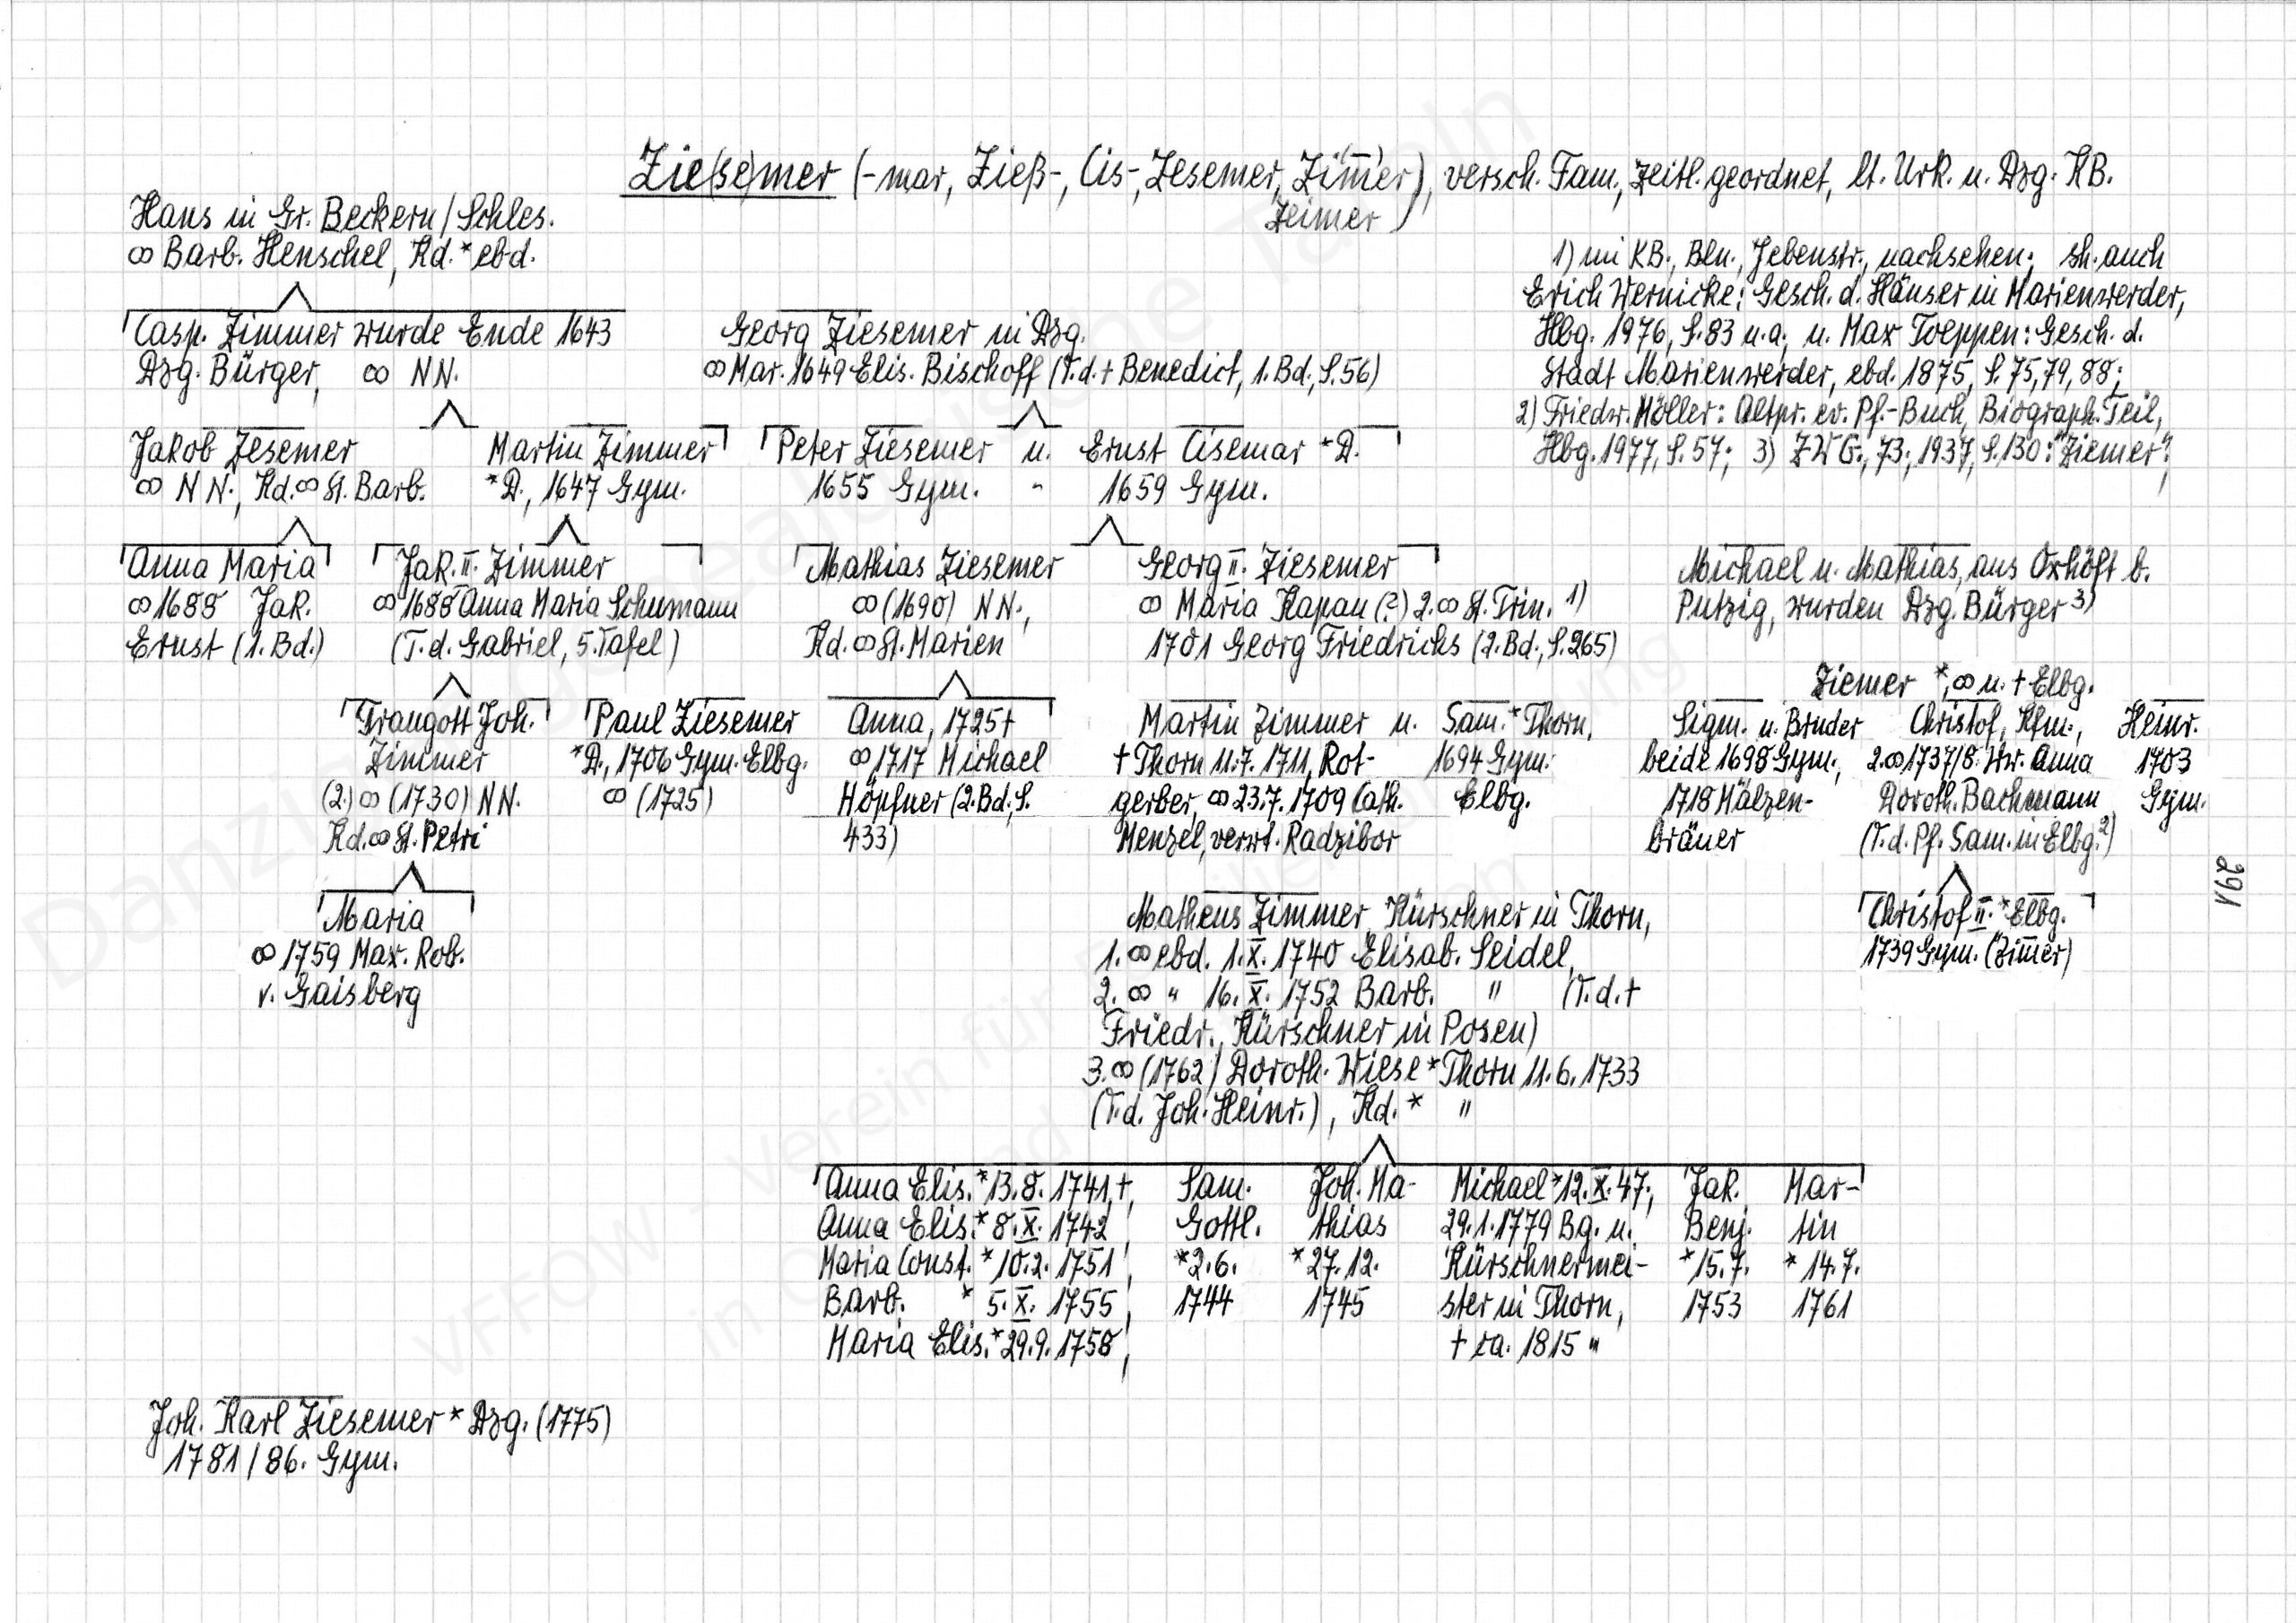 Zie(se)mer (-mar, Zieß-, Cis-, Zesemer, Zim̅er), versch. Fam., zeitl. geordnet, lt. Urk. u. Dzg. KB.
Zeimer
Hans in Gr. Beckern/Schles.
∞ Barb. Henschel, Kd. * ebd.
1) im KB., Bln., Jebenstr., nachsehen; sh. auch
Erich Wernicke: Gesch. d. Häuser in Marienwerder,
Hbg. 1976, S. 83 u. a; u. Max Toeppen: Gesch. d.
Stadt Marienwerder, ebd. 1875, S. 75, 79, 88;
2) Friedw. Möller: Altpr. ev. Pf.-Buch, Biograph. Teil,
Hbg. 1977, S. 57; 3) ZWG., 73, 1937, S. 130: "Ziemer";
Casp. Zimmer wurde Ende 1643
Dzg. Bürger, ∞ NN.
Georg Ziesemer in Dzg.
∞ Mar. 1649 Elis. Bischoff (T. d. + Benedict, 1. Bd., S. 56)
Jakob Zesemer
∞ NN., Kd. ∞ St. Barb.
Martin Zimmer
* D., 1647 Gym.
Peter Ziesemer u. Ernst Cisemar * D.
1655 Gym. - 1659 Gym.
Anna Maria
∞ 1688 Jak.
Ernst (1. Bd.)
Jak. II. Zimmer
∞ 1688 Anna Maria Schumann
(T. d. Gabriel, 5. Tafel)
Mathias Ziesemer
∞ (1690) NN.,
Kd. ∞ St. Marien
Georg II. Ziesemer
∞ Maria Kapau (?) 2. ∞ St. Trin. 1)
1701 Georg Friedrichs (2. Bd., S. 265)
Michael u. Mathias, aus Oxhöft b.
Putzig, wurden Dzg. Bürger 3)
Traugott Joh.
Zimmer
(2.) ∞ (1730) NN.
Kd. ∞ St. Petri
Paul Ziesemer
* D., 1706 Gym. Elbg.
∞ (1725)
Anna, 1725 +
∞ 1717 Michael
Höpfner (2. Bd., S.
433)
Martin Zimmer u.
+ Thorn 11.7. 1711, Rot-
gerber, ∞ 23.7. 1709 Cath.
Menzel, verwt. Radzibor
Sam. * Thorn,
1694 Gym.
Elbg.
Ziemer *, ∞ u. + Elbg.
Sigm. u. Bruder
beide 1698 Gym.,
1718 Mälzen-
bräuer
Christof, Kfm.,
2. ∞ 1737/8. Ww. Anna
Doroth. Bachmann
(T. d. Pf. Sam. in Elbg. 2)
Heinr.
1703
Gym.
291
Maria
∞ 1759 Max. Rob.
v. Gaisberg
Matheus Zimmer, Kürschner in Thorn,
1. ∞ ebd. 1. X. 1740 Elisab. Seidel,
2. ∞ " 16. X. 1752 Barb. " (T. d. +
Friedr., Kürschner in Posen)
3. ∞ (1762) Doroth. Wiese * Thorn 11. 6. 1733
(T. d. Joh. Heinr.), Kd. * "
Christof II. * Elbg.
1739 Gym. (Zim̅er)
Anna Elis. * 13. 8. 1741, +,
Anna Elis. * 8. X. 1742,
Maria Const. * 10. 2. 1751,
Barb. * 5. X. 1755,
Maria Elis. * 29. 9. 1758,
Sam.
Gottl.
* 2. 6.
1744
Joh. Ma-
thias
* 27. 12.
1745
Michael * 12. X. 47,
29. 1. 1779 Bg. u.
Kürschnermei-
ster in Thorn,
+ ca. 1815 "
Jak.
Benj.
* 15. 7.
1753
Mar-
tin
* 14. 7.
1761
Joh. Karl Ziesemer * Dzg. (1775)
1781/86. Gym.